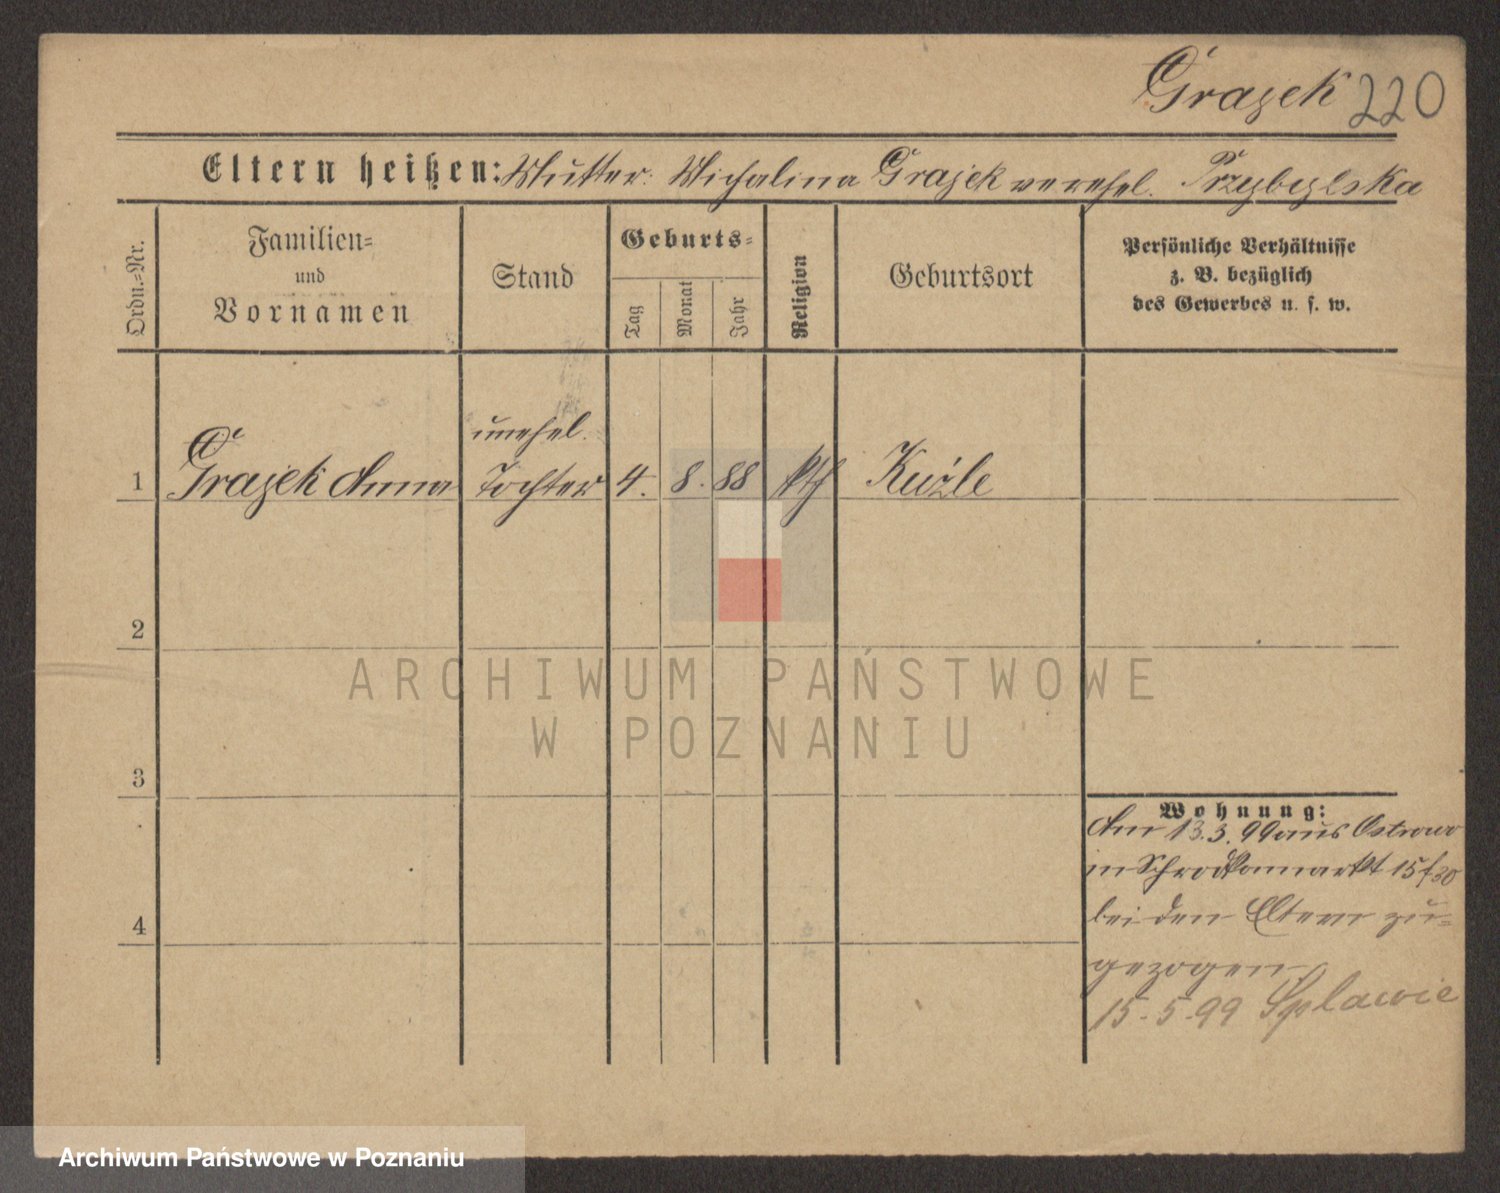 Grajek 220
Eltern heißen: Mutter: Michalina Grajek verehel. Przybylska
Ordn.-Nr.
Familien-
und
Vornamen
Stand
Geburts-
Tag
Monat
Jahr
Religion
Geburtsort
Persönliche Verhältnisse
z. B. bezüglich
des Gewerbes u. s. w.
unehel.
1 Grajek Anna Tochter 4. 8. 88 kth Kuźle
2
3
4
Wohnung:
Am 13.3.99 aus Ostrowo
in Schrodkamarkt 15 f 30
bei den Eltern zu-
gezogen
15.5.99 Splawie
ARCHIWUM PAŃSTWOWE
W POZNANIU
Archiwum Państwowe w Poznaniu